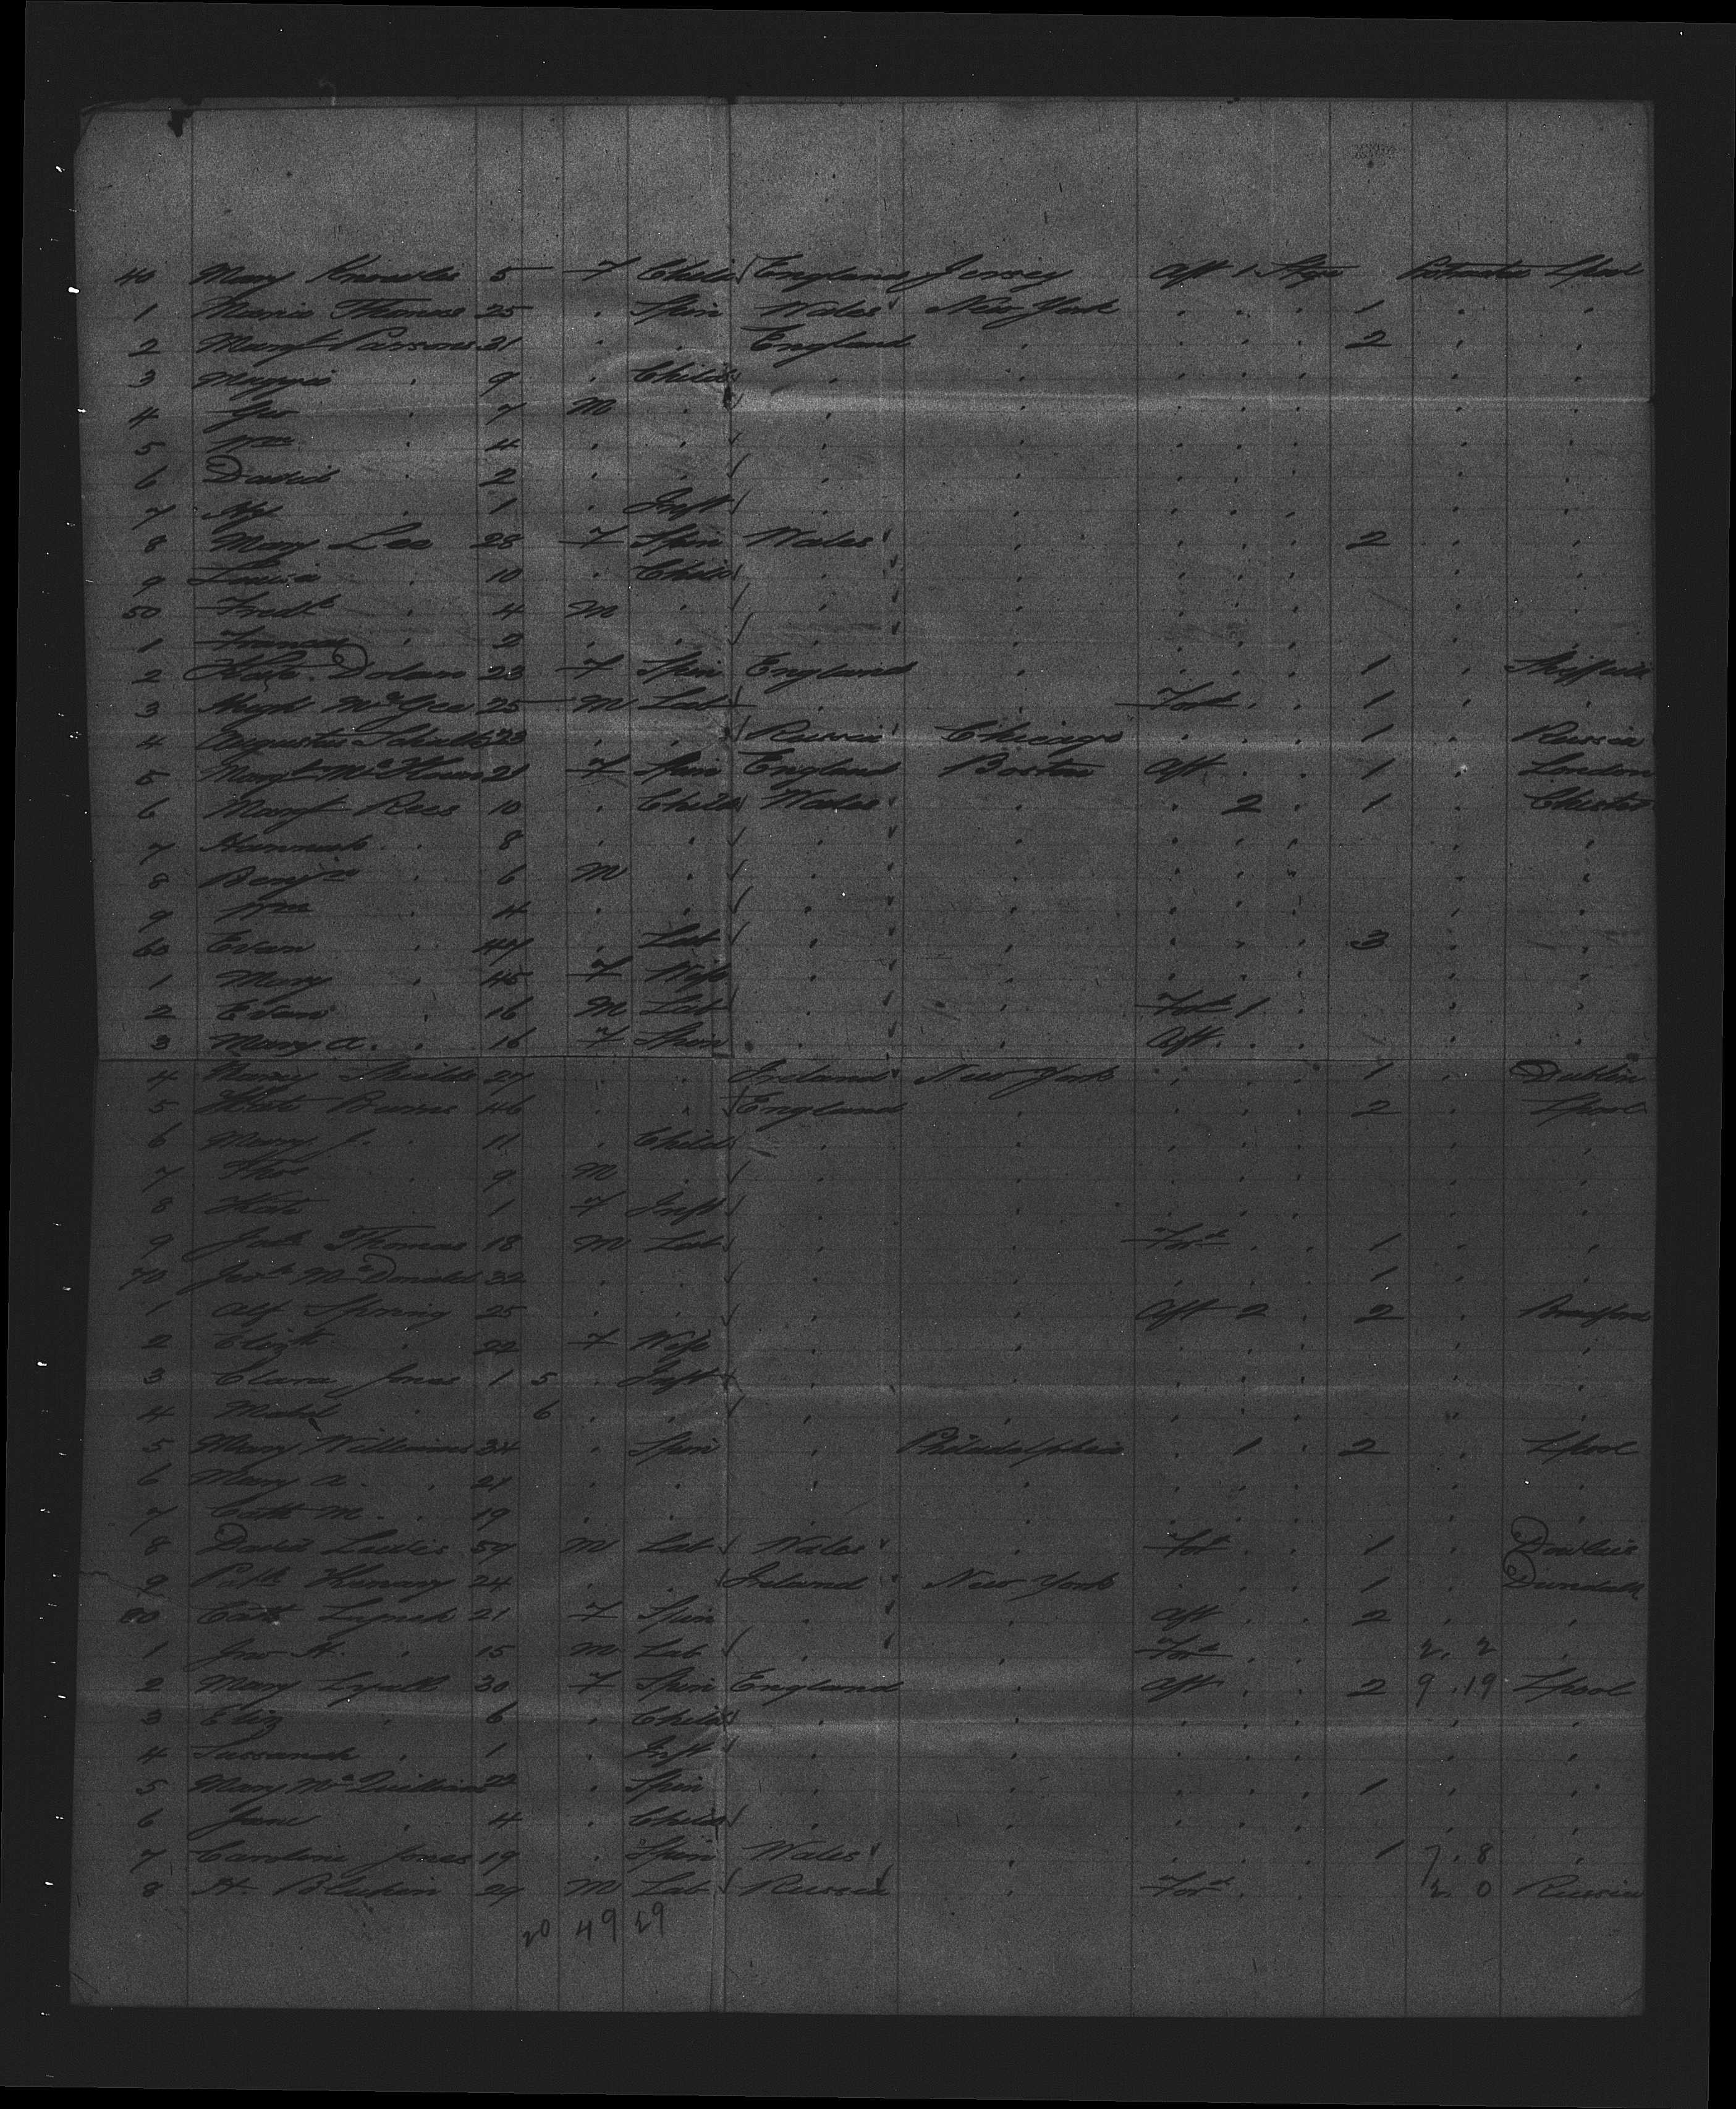 40 Mary Knowles 5 F Child England Jersey Aft 1 Stge Protracted Lpool
1 Maria Thomas 25 . Spin Wales New York . . . 1 . .
2 Margt Parsons 31 . . England . . . . 2 . .
3 Maggie . 9 . Child . . . . . . .
4 Geo . 7 M . . . . . . . .
5 Wm . 4 . . . . . . . . .
6 David . 2 . . . . . . . .
7 . 1 . Inft . . . . . . .
8 Mary Lee 28 F Spin Wales . . . . 2 . .
9 Louisa . 10 . Child . . . . . . .
50 Fredk . 4 M . . . . . . . .
1 Frances . 2 . . . . . . . . .
2 Kate Dolan 23 F Spin England . . . . 1 . Sheffield
3 Hugh McGee 25 M Lab . . Ford . . 1 . .
4 Augustus Schultz 23 . . Russia Chicago . . . 1 . Russia
5 Margt 21 F Spin England Boston Aft . . 1 . London
6 Margt Rees 10 . Child Wales . . 2 . 1 . Chester
7 Hannah . 8 . . . . . . . . .
8 Benjn . 6 M . . . . . . . .
9 Wm . 4 . . . . . . . . .
60 Evan . 47 . Lab . . . . . 3 . .
1 Mary . 45 F Wife . . . . . . .
2 Evan . 16 M Lab . . Ford 1 . . .
3 Mary A. . 16 F Spin . . Aft . . . .
4 Mary Shields 27 . . Ireland New York . . . 1 . Dublin
5 Kate Burns 46 . . England . . . . 2 . Lpool
6 Mary J. . 11 . Child . . . . . . .
7 Thos . 9 M . . . . . . . .
8 Kate . 1 F Inft . . . . . . .
9 Thomas 18 M Lab . . Ford . . 1 . .
70 McDonald 32 . . . . . . . 1 . .
1 Alf Spring 25 . . . . Aft 2 . 2 . Bradford
2 Elizth . 22 F Wife . . . . . . .
3 Clara Jones 1 5 . Inft . . . . . . .
4 . 6 . . . . . . . . .
5 Mary Williams 34 . Spin . Philadelphia . 1 . 2 . Lpool
6 Mary A. . 21 . . . . . . . . .
7 Cath M. . 19 . . . . . . . . .
8 David Lewis 59 M Lab Wales . Ford . . 1 . Dowlais
9 Patk 24 . . Ireland New York . . . 1 . Dundalk
80 Cath Lynch 21 F Spin . . Aft . . 2 . .
1 Jno H. . 15 M Lab . . Ford . . 2. 2 .
2 Mary Lyall 30 F Spin England . Aft . . 2 9 . 19 Lpool
3 Eliz . 6 . Child . . . . . . .
4 Sussanah . 1 . Inft . . . . . . .
5 Mary . Spin . . . . . 1 . .
6 Jane . 4 . Child . . . . . . .
7 Caroline Jones 19 . Spin Wales . . . . 1 7 . 8 .
8 H. 29 M Lab Russia . Ford . . 2 0 Russia
20 49 29